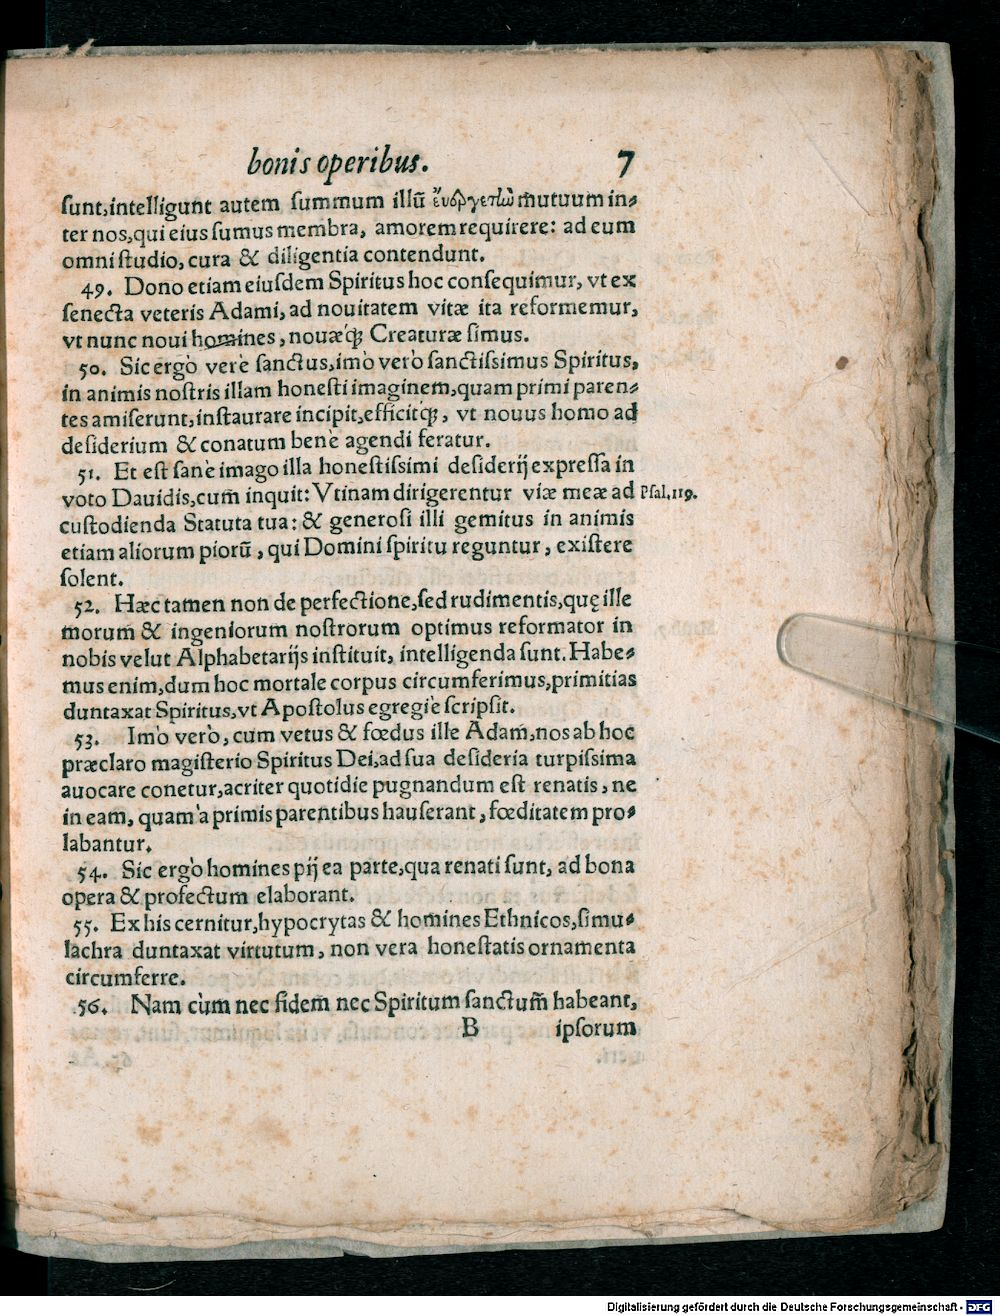 bonis operibus. 7
sunt, intelligunt autem summum illũ ἐυεργετlὼ mutuum in-
ter nos, qui eius sumus membra, amorem requirere: ad eum
omni studio, cura & diligentia contendunt.
49. Dono etiam eiusdem Spiritus hoc consequimur, vt ex
senecta veteris Adami, ad nouitatem vitæ ita reformemur,
vt nunc noui homines, nouæq́ꝫ Creaturæ simus.
50. Sic ergò verè sanctus, imò verò sanctissimus Spiritus,
in animis nostris illam honesti imaginem, quam primi paren-
tes amiserunt, instaurare incipit, efficitq́ꝫ, vt nouus homo ad
desiderium & conatum benè agendi feratur.
51. Et est sanè imago illa honestissimi desiderij expressa in
voto Dauidis, cum inquit: Vtinam dirigerentur viæ meæ ad Psal. 119.
custodienda Statuta tua: & generosi illi gemitus in animis
etiam aliorum piorũ, qui Domini spiritu reguntur, existere
solent.
52. Hæc tamen non de perfectione, sed rudimentis, quę ille
morum & ingeniorum nostrorum optimus reformator in
nobis velut Alphabetarijs instituit, intelligenda sunt. Habe-
mus enim, dum hoc mortale corpus circumferimus, primitias
duntaxat Spiritus, vt Apostolus egregiè scripsit.
53. Imò verò, cum vetus & fœdus ille Adam, nos ab hoc
præclaro magisterio Spiritus Dei, ad sua desideria turpissima
auocare conetur, acriter quotidie pugnandum est renatis, ne
in eam, quam à primis parentibus hauserant, fœditatem pro-
labantur.
54. Sic ergò homines pij ea parte, qua renati sunt, ad bona
opera & profectum elaborant.
55. Ex his cernitur, hypocrytas & homines Ethnicos, simu-
lachra duntaxat virtutum, non vera honestatis ornamenta
circumferre.
56. Nam cùm nec fidem nec Spiritum sanctum̃ habeant,
B ipsorum
Digitalisierung gefördert durch die Deutsche Forschungsgemeinschaft - DFG